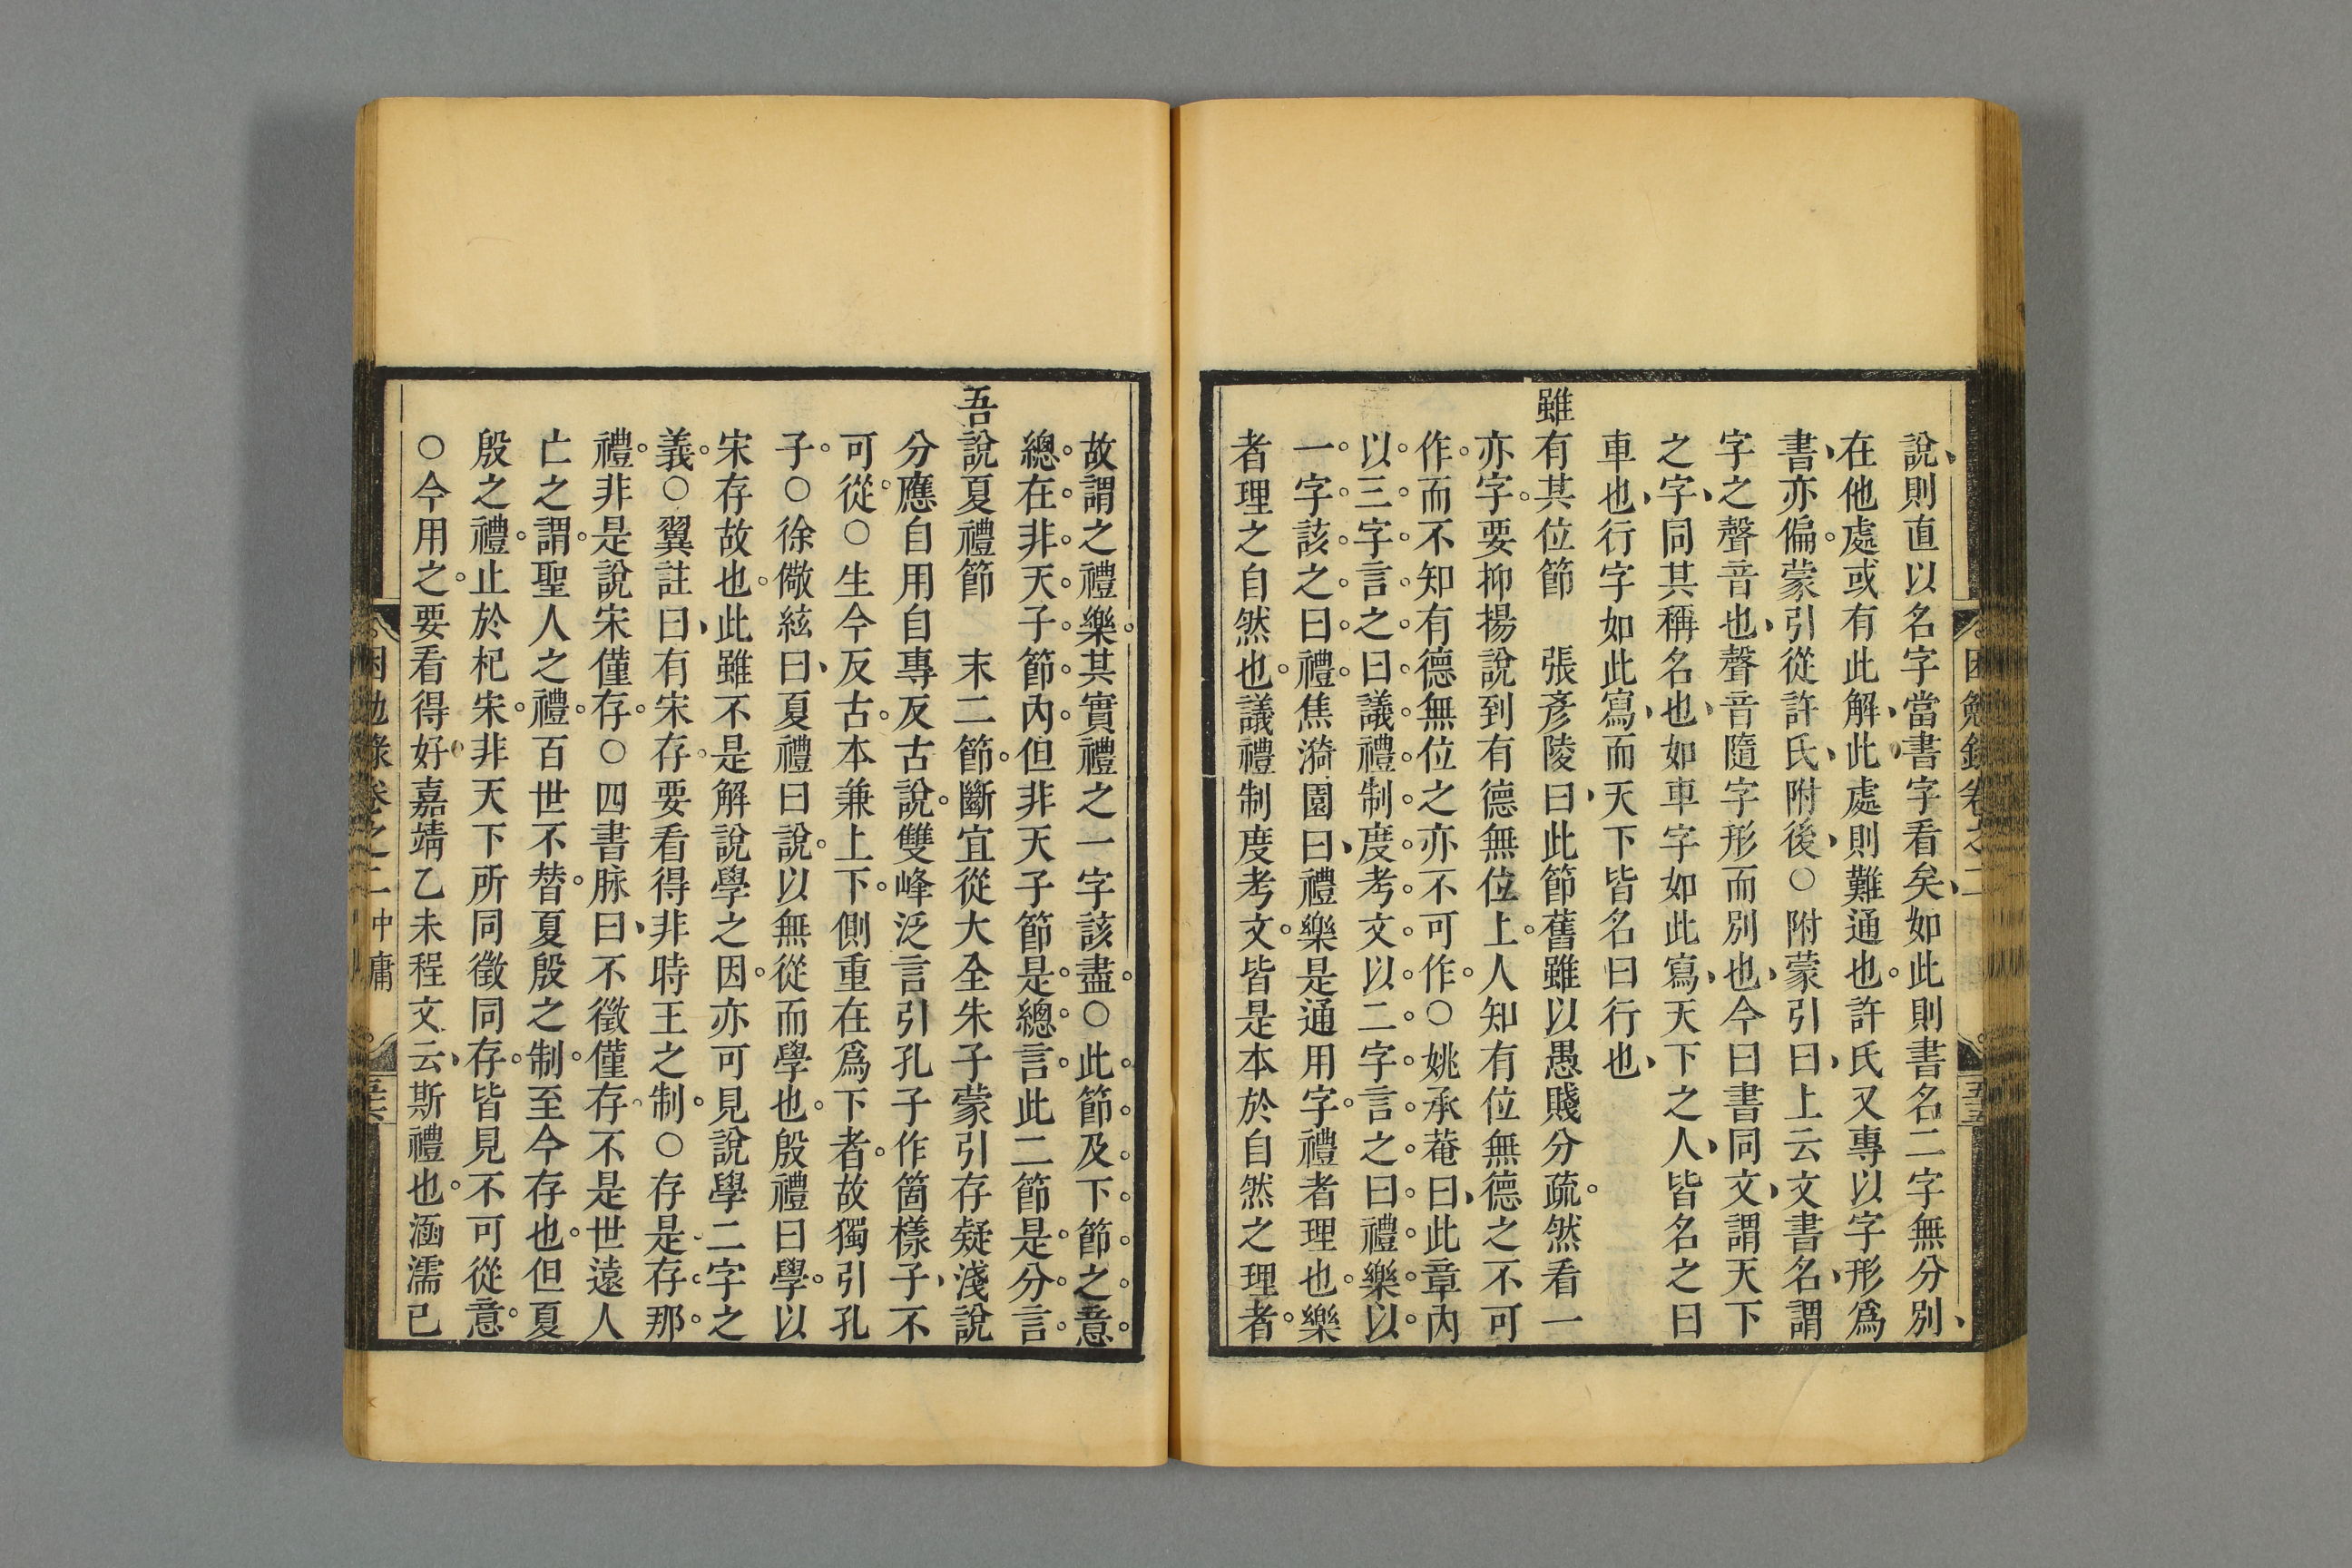 困勉錄卷之二
五五
說則直以名字當書字看矣如此則書名二字無分別
在他處或有此解此處則難通也許氏又專以字形爲
書亦偏蒙引從許氏附後○附蒙引曰上云文書名謂
字之聲音也聲音隨字形而別也今曰書同文謂天下
之字同其稱名也如車字如此寫天下之人皆名之曰
車也行字如此寫而天下皆名曰行也
雖有其位節　張彥陵曰此節舊雖以愚賤分疏然看一
亦字要抑揚說到有德無位上人知有位無德之不可
作而不知有德無位之亦不可作○姚承菴曰此章內
以三字言之曰議禮制度考文以二字言之曰禮樂以
一字該之曰禮焦漪園曰禮樂是通用字禮者理也樂
者理之自然也議禮制度考文皆是本於自然之理者
故謂之禮樂其實禮之一字該盡○此節及下節之意
總在非天子節內但非天子節是總言此二節是分言
吾說夏禮節　末二節斷宜從大全朱子蒙引存疑淺說
分應自用自專反古說雙峰泛言引孔子作箇樣子不
可從○生今反古本兼上下側重在爲下者故獨引孔
子○徐儆絃曰夏禮曰說以無從而學也殷禮曰學以
宋存故也此雖不是解說學之因亦可見說學二字之
義○翼註曰有宋存要看得非時王之制○存是存那
禮非是說宋僅存○四書脉曰不徵僅存不是世遠人
亡之謂聖人之禮百世不替夏殷之制至今存也但夏
殷之禮止於杞宋非天下所同徵同存皆見不可從意
○今用之要看得好嘉靖乙未程文云斯禮也涵濡已
困勉錄卷之二　中庸
五六